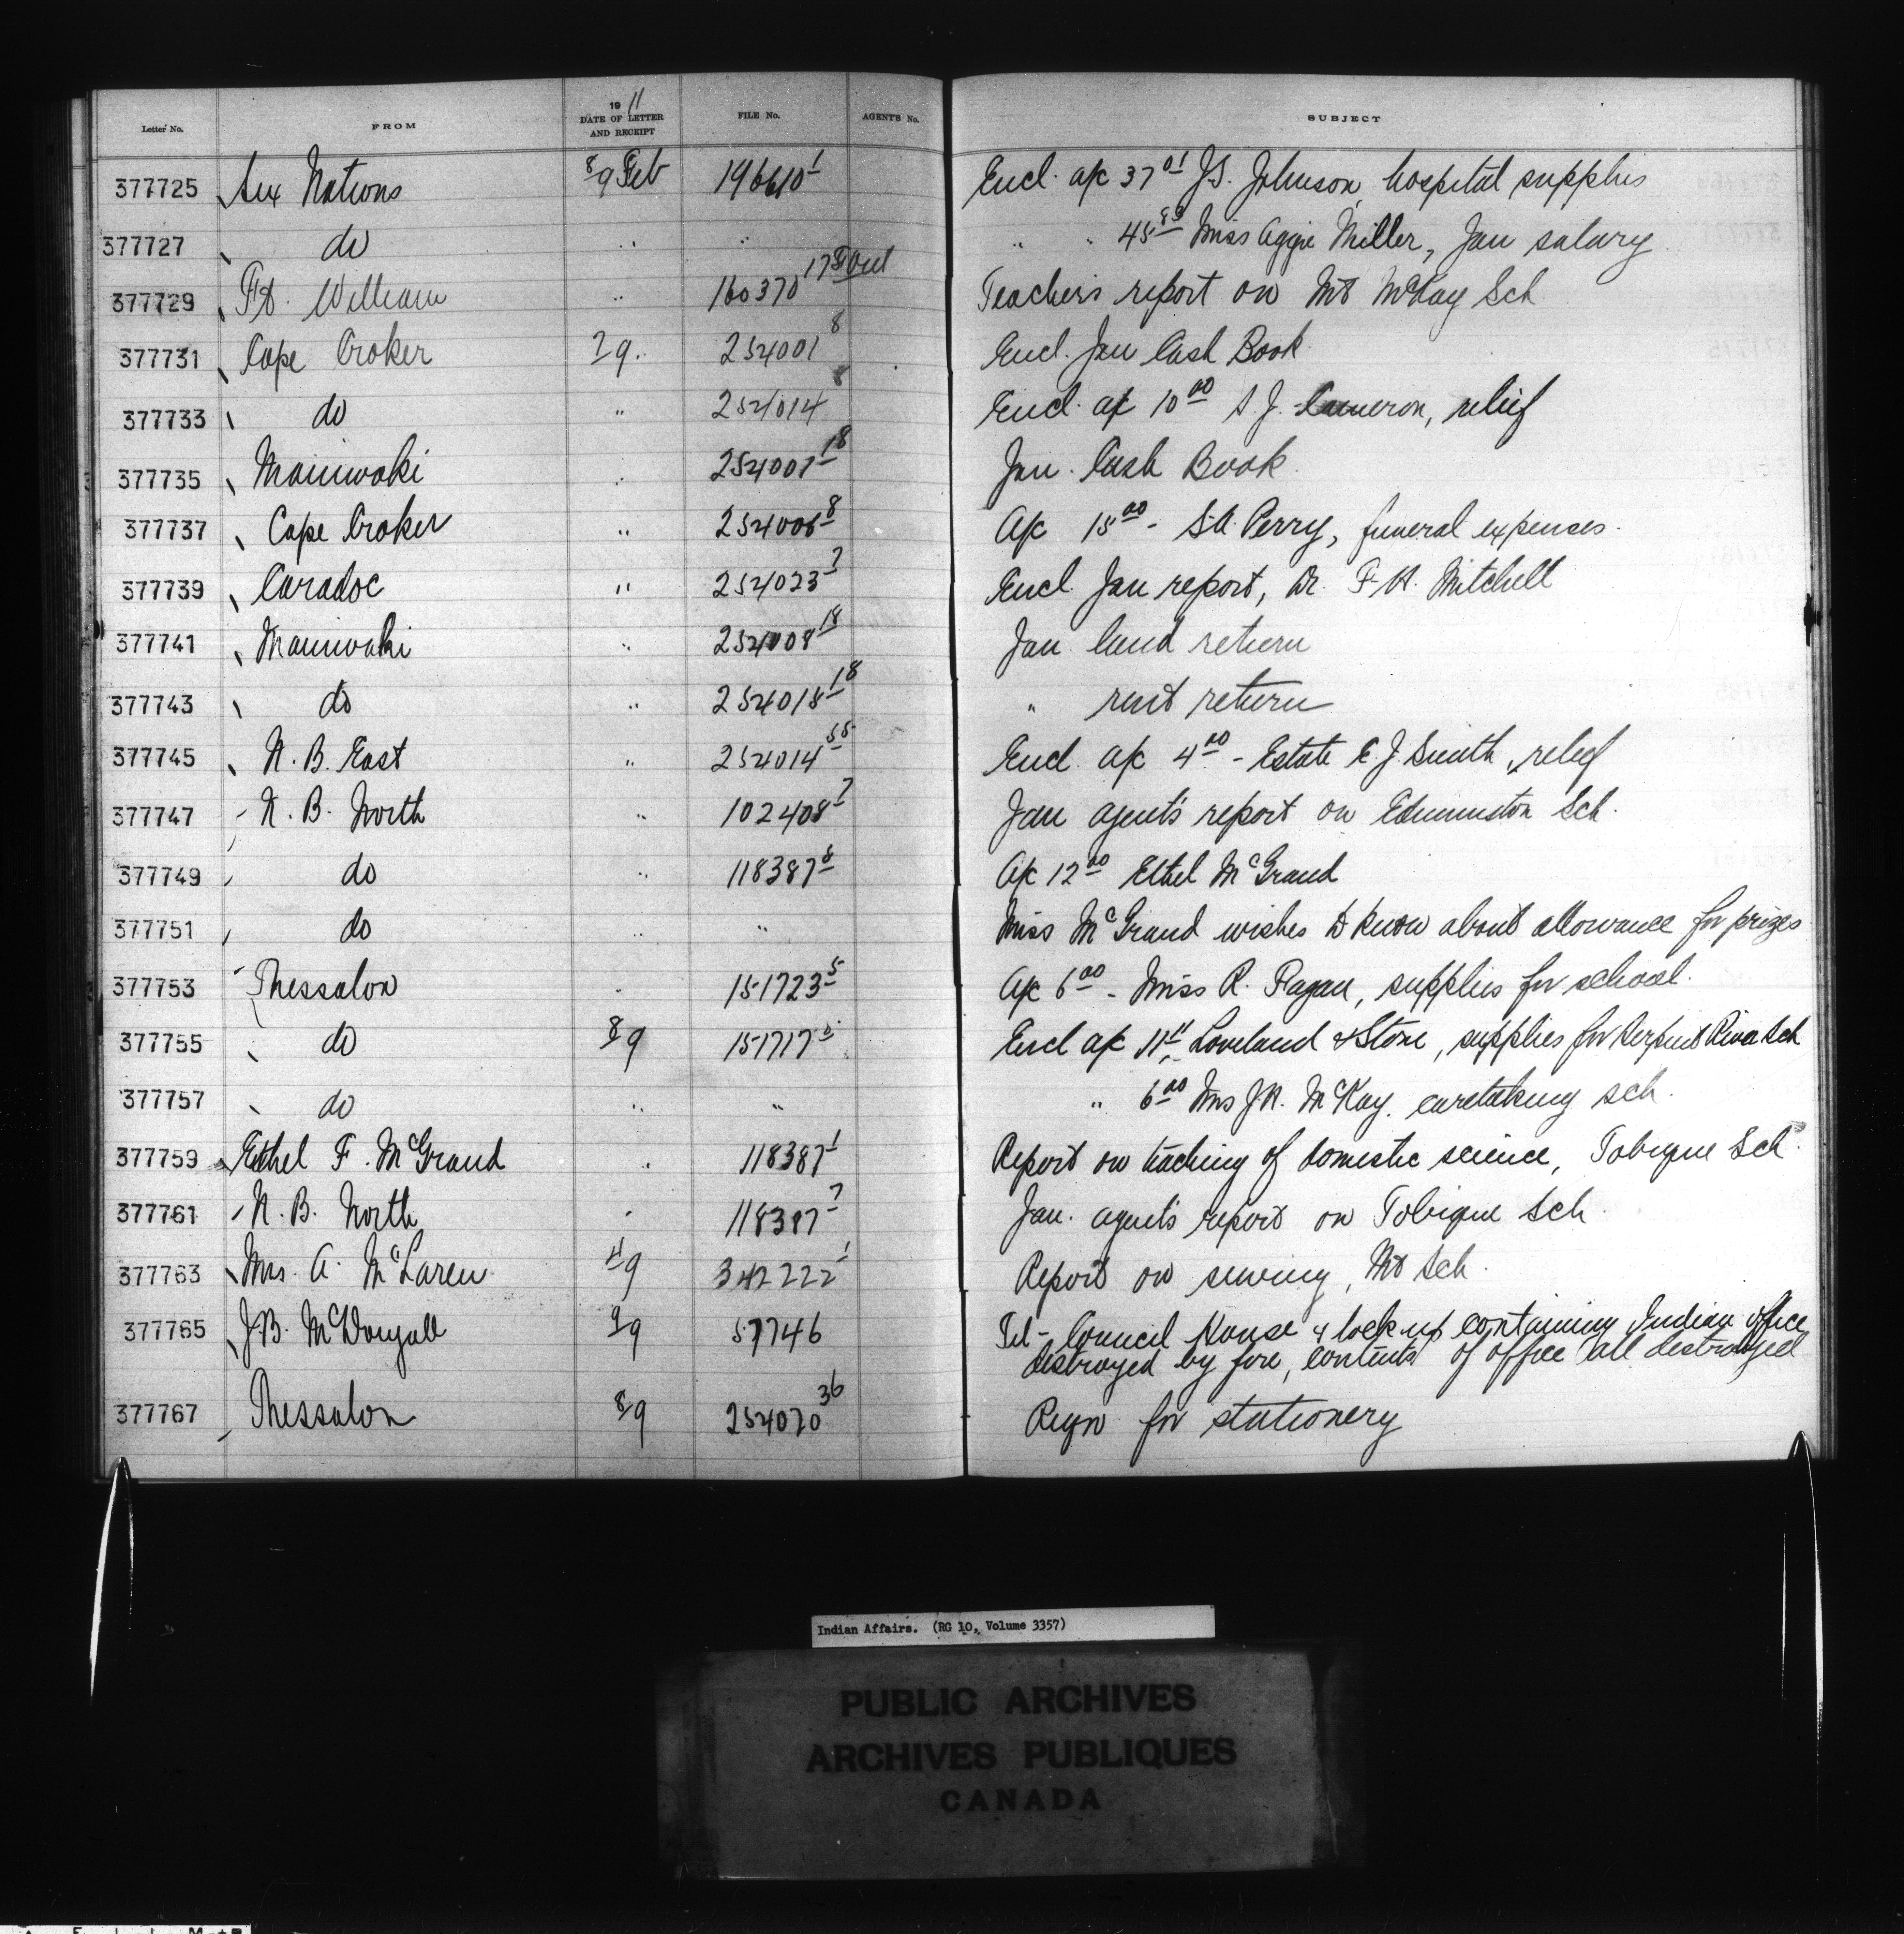 Letter No. FROM 1911 DATE OF LETTER AND RECEIPT FILE No. AGENT'S No. SUBJECT
377725 Six Nations 8/9 Feb 196610-1 Encl. a/c 37.01 J.S. Johnson, hospital supplies
377727 do " " " " 45.83 Miss Aggie Miller, Jan salary
377729 Ft. William " 160370 Teachers report on Mt McKay Sch
377731 Cape Croker 7/9 254001-8 Encl. Jan Cash Book
377733 do " 254014-8 Encl. a/c 10.00 S.J. Cameron, relief
377735 Maniwaki " 254001-18 Jan. Cash Book
377737 Cape Croker " 254006-8 A/c 15.00 - S.A. Perry, funeral expenses.
377739 Caradoc " 254023-7 Encl. Jan report, Dr. F.H. Mitchell
377741 Maniwaki " 254008-18 Jan land return
377743 do " 254018-18 " rent return
377745 N. B. East " 254014-55 Encl. a/c 4.00 - Estate E.J. Smith, relief
377747 N. B. North " 102408-7 Jan agent's report on Edmunston Sch.
377749 do " 118387-8 A/c 12.00 Ethel McGrand
377751 do " " Miss McGrand wishes to know about allowance for prizes
377753 Thessalon " 151723-5 A/c 6.00 - Miss R. Fagan, supplies for school.
377755 do 8/9 151717-5 Encl a/c 11.11 Loveland & Stone, supplies for Serpent River Sch
377757 do " " " 6.00 Mrs J.H. McKay, caretaking sch.
377759 Ethel F. McGrand " 118387-1 Report on teaching of domestic science, Tobique Sch.
377761 N. B. North " 118387-7 Jan. agent's report on Tobique Sch.
377763 Mrs. A. McLaren 4/9 342222-1 Report on sewing, Mt Sch.
377765 J.B. McDougall 9/9 57746 Tel - Council House & lock up containing Indian office
destroyed by fire, contents of office all destroyed
377767 Thessalon 8/9 254070-36 Reqn for stationery
Indian Affairs. (RG 10, Volume 3357)
PUBLIC ARCHIVES
ARCHIVES PUBLIQUES
CANADA